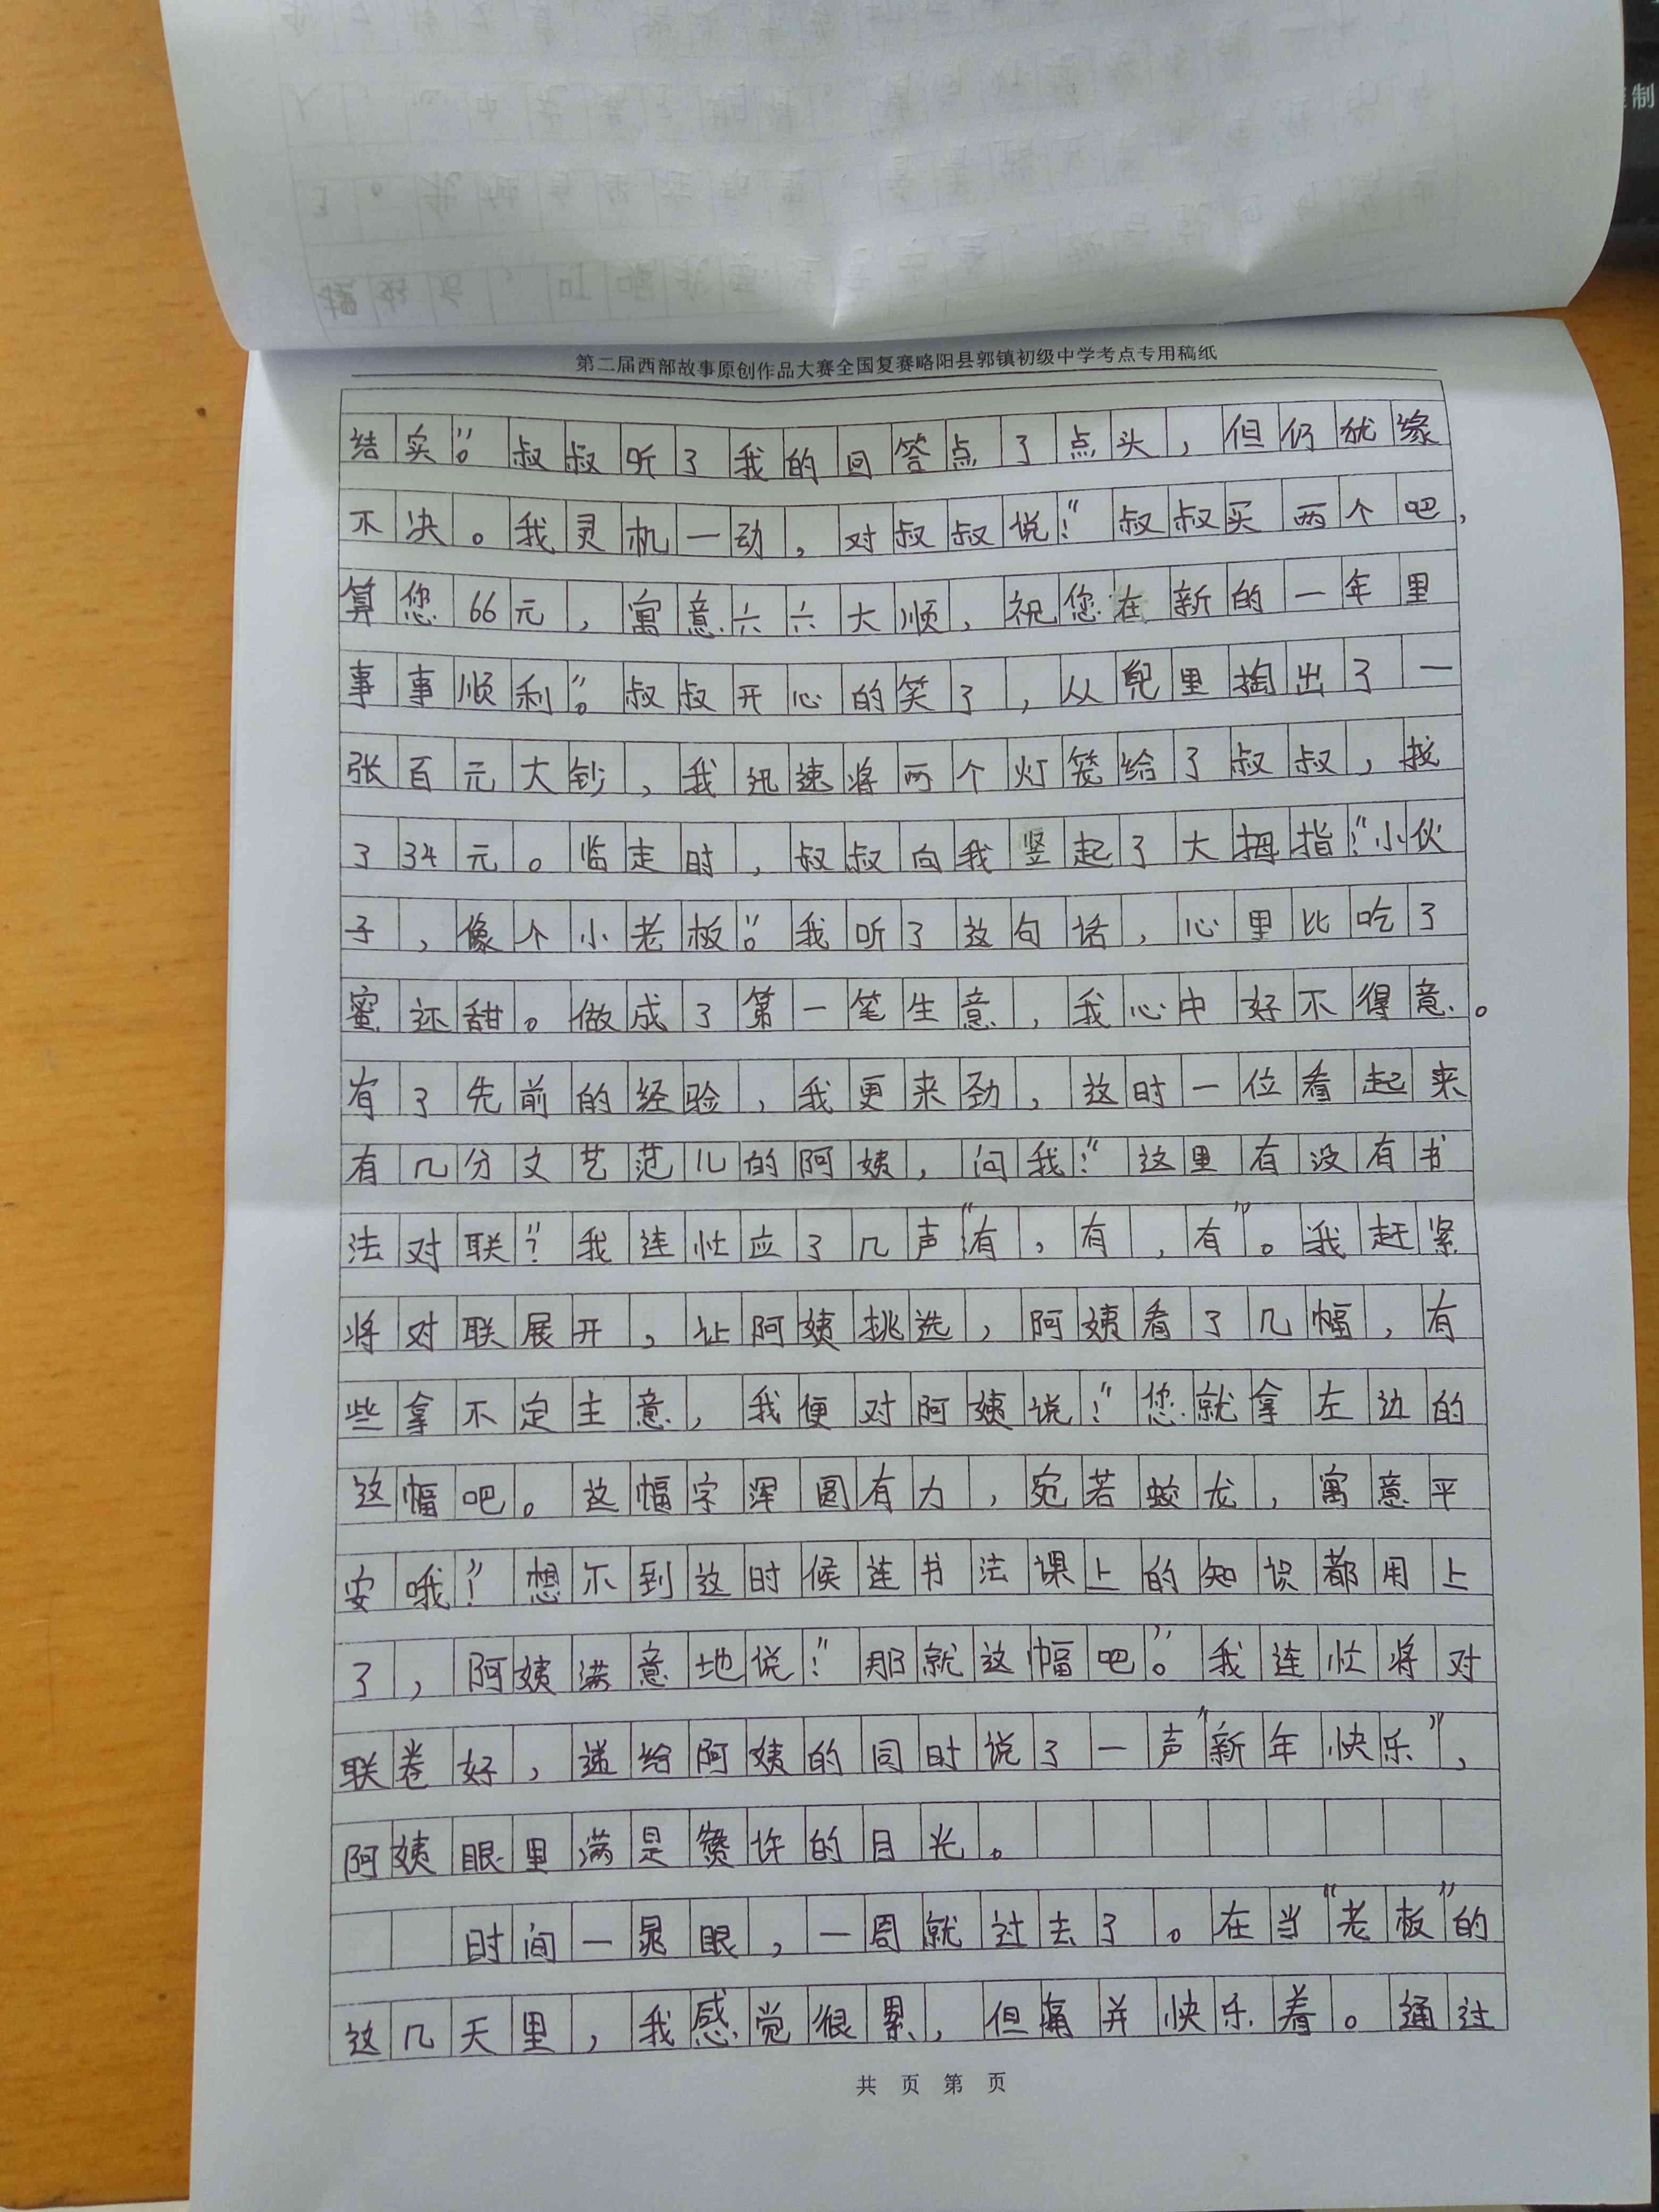 第二届西部故事原创作品大赛全国复赛略阳县郭镇初级中学考点专用稿纸
结实。”叔叔听了我的回答点了点头，但仍犹缘
不决。我灵机一动，对叔叔说：“叔叔买两个吧，
算您66元，寓意六六大顺，祝您在新的一年里
事事顺利。”叔叔开心的笑了，从兜里掏出了一
张百元大钞，我迅速将两个灯笼给了叔叔，找
了34元。临走时，叔叔向我竖起了大拇指：“小伙
子，像个小老板。”我听了这句话，心里比吃了
蜜还甜。做成了第一笔生意，我心中好不得意。
有了先前的经验，我更来劲，这时一位看起来
有几分文艺范儿的阿姨，问我：“这里有没有书
法对联？”我连忙应了几声“有，有，有”。我赶紧
将对联展开，让阿姨挑选，阿姨看了几幅，有
些拿不定主意，我便对阿姨说：“您就拿左边的
这幅吧。这幅字浑圆有力，宛若蛟龙，寓意平
安哦！”想不到这时候连书法课上的知识都用上
了，阿姨满意地说：“那就这幅吧。”我连忙将对
联卷好，递给阿姨的同时说了一声“新年快乐”，
阿姨眼里满是赞许的目光。
时间一晃眼，一周就过去了。在当“老板”的
这几天里，我感觉很累，但痛并快乐着。通过
共 页 第 页